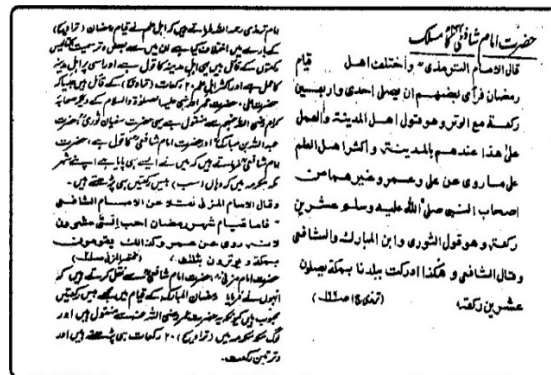 حضرت امام شافعیؒ کا مسلک
قال الامام الترمذی واختلف اهل قیام
رمضان فرأی بعضهم ان یصلی احدی واربعین
رکعة مع الوتر وهو قول اهل المدینة والعمل
علیٰ هذا عندهم بالمدینة واکثر اهل العلم
علی ماروی عن علی وعمر وغیرهما من
اصحاب النبی صلی الله علیه وسلم عشرین
رکعة وهو قول الثوری وابن المبارک والشافعی
وقال الشافعی وهٰکذا ادرکت ببلدنا بمکة یصلون
عشرین رکعة (ترمذی ج۱
امام ترمذی رحمہ اللہ فرماتے ہیں کہ اہل علم نے قیام رمضان (تراویح)
کے بارے میں اختلاف کیا ہے ان میں سے بعض وتر سمیت اکتالیس
رکعتوں کے قائل ہیں یہی اہل مدینہ کا قول ہے اور اسی پر اہل مدینہ
کا عمل ہے اور اکثر اہل علم ۲۰ رکعات (تراویح) کے قائل ہیں جیسا کہ
حضرت علی، حضرت عمر اور نبی علیہ الصلوٰۃ والسلام کے دیگر صحابہ
کرام رضی اللہ عنہم سے منقول ہے یہی حضرت سفیان ثوری، حضرت
عبد اللہ بن مبارک اور حضرت امام شافعی کا قول ہے، امام
شافعی فرماتے ہیں کہ میں نے ایسے ہی پایا ہے اپنے شہر
مکہ مکرمہ میں کہ وہاں (سب) بیس رکعتیں ہی پڑھتے ہیں۔
وقال الامام المزنی نقلا عن الامام الشافعی
فاما قیام شهر رمضان احب الی عشرون
لانه روی عن عمر وکذالک یقومون
بمکة ویوترون بثلث (مختصر المزنی
حضرت امام مزنی، حضرت امام شافعی سے نقل کرتے ہیں کہ
انہوں نے فرمایا رمضان المبارک کے قیام میں مجھے بیس رکعتیں
محبوب ہیں کیونکہ یہ حضرت عمر رضی اللہ عنہ سے منقول ہیں اور
لوگ مکہ مکرمہ میں (تراویح) ۲۰ رکعات ہی پڑھتے ہیں اور
وتر تین رکعت۔